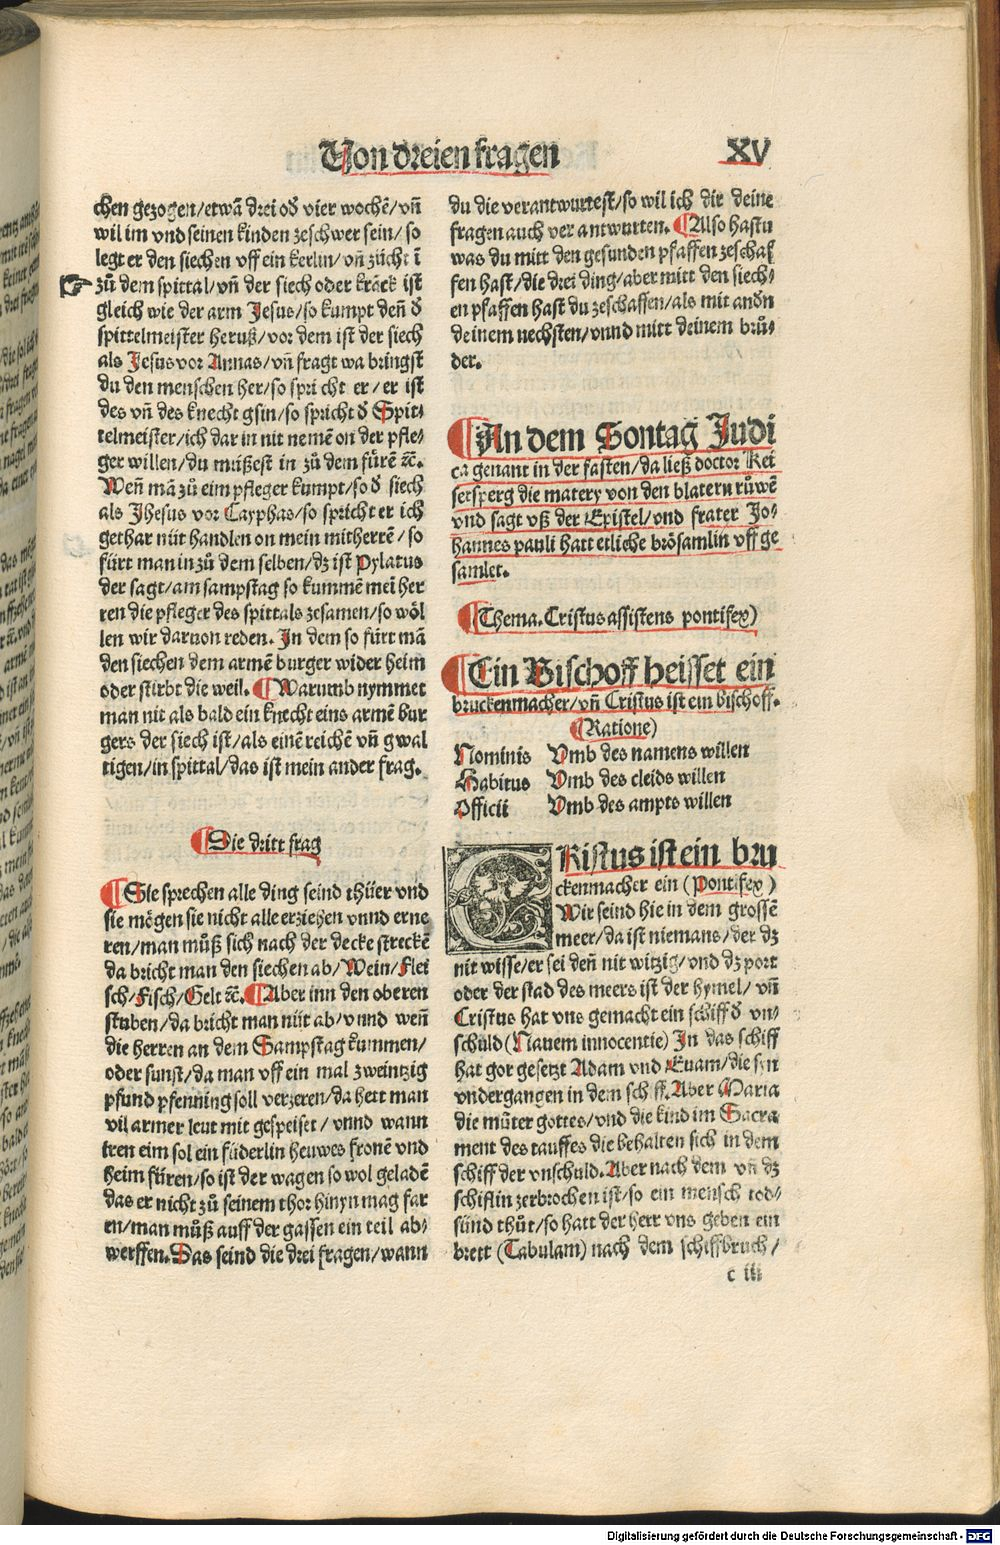 Von dreien fragen XV
chen gezogen/etwā drei od̕ vier wochē/vn̄
wil im vnd seinen kinden zeschwer sein/so
legt er den siechen vff ein kerlin/vn̄ zücht ī
zů dem spittal/vn̄ der siech oder krāck ist
gleich wie der arm Jesus/so kumpt den̄ d̕
spittelmeister heruß/vor dem ist der siech
als Jesus vor Annas/vn̄ fragt wa bringst
du den menschen her/so spricht er/er ist
des vn̄ des knecht gsin/so spricht d̕ Spit⸗
telmeister/ich dar in nit nemē on der pfle⸗
ger willen/du můßest in zů dem fürē ⁊c̄.
Wen̄ mā zů eim pfleger kumpt/so d̕ siech
als Jhesus vor Cayphas/so spricht er ich
gethar nüt handlen on mein mitherrē/so
fürt man in zů dem selben/dz ist Pylatus
der sagt/am sampstag so kummē mei her
ren die pfleger des spittals zesamen/so wöl
len wir daruon reden. In dem so fürt mā
den siechen dem armē burger wider heim
oder stirbt die weil. ¶Warumb nymmet
man nit als bald ein knecht eins armē bur
gers der siech ist/als einē reichē vn̄ gwal
tigen/in spittal/das ist mein ander frag.
¶Die dritt frag
¶Sie sprechen alle ding seind thüer vnd
sie mögen sie nicht alle erziehen vnnd erne
ren/man můß sich nach der decke streckē
da bricht man den siechen ab/Wein/Flei
sch/Fisch/Gelt ⁊c̄. ¶Aber inn den oberen
stuben/da bricht man nüt ab/vnnd wen̄
die herren an dem Sampstag kummen/
oder sunst/da man vff ein mal zweintzig
pfund pfenning soll verzeren/da hett man
vil armer leut mit gespeiset/vnnd wann
tren eim sol ein füderlin heuwes fronē vnd
heim füren/so ist der wagen so wol geladē
das er nicht zů seinem thor hinyn mag far
en/man můß auff der gassen ein teil ab⸗
werffen. Das seind die drei fragen/wann
du die verantwurtest/so wil ich dir deine
fragen auch verantwurten. ¶Also hastu
was du mitt den gesunden pfaffen zeschaf
fen hast/die drei ding/aber mitt den siech⸗
en pfaffen hast du zeschaffen/als mit and̕n
deinem nechsten/vnnd mitt deinem brů⸗
der.
¶An dem Sontag Judi
ca genant in der fasten/da ließ doctor Kei
sersperg die matery von den blatern růwē
vnd sagt vß der Epistel/vnd frater Jo⸗
hannes pauli hatt etliche brösamlin vff ge
samlet.
¶(Thema. Cristus assistens pontifex)
¶Ein Bischoff heisset ein
bruckenmacher/vn̄ Cristus ist ein bischoff.
¶(Ratione)
Nominis Vmb des namens willen
Habitus Vmb des cleids willen
Officii Vmb des ampts willen
CRistus ist ein bru
ckenmacher ein (Pontifex)
Wir seind hie in dem grossē
meer/da ist niemans/der dz
nit wisse/er sei den̄ nit witzig/vnd dz port
oder der stad des meers ist der hymel/vn̄
Cristus hat vns gemacht ein schiff d̕ vn⸗
schuld (Nauem innocentie) In das schiff
hat gor gesetzt Adam vnd Euam/die sin
vndergangen in dem schiff. Aber Maria
die můter gottes/vnd die kind im Sacra
ment des tauffes die behalten sich in dem
schiff der vnschuld. Aber nach dem vn̄ dz
schiflin zerbrochen ist/so ein mensch tod⸗
sünd thůt/so hatt der herr vns geben ein
brett (Tabulam) nach dem schiffbruch/
c iii
Digitalisierung gefördert durch die Deutsche Forschungsgemeinschaft - DFG